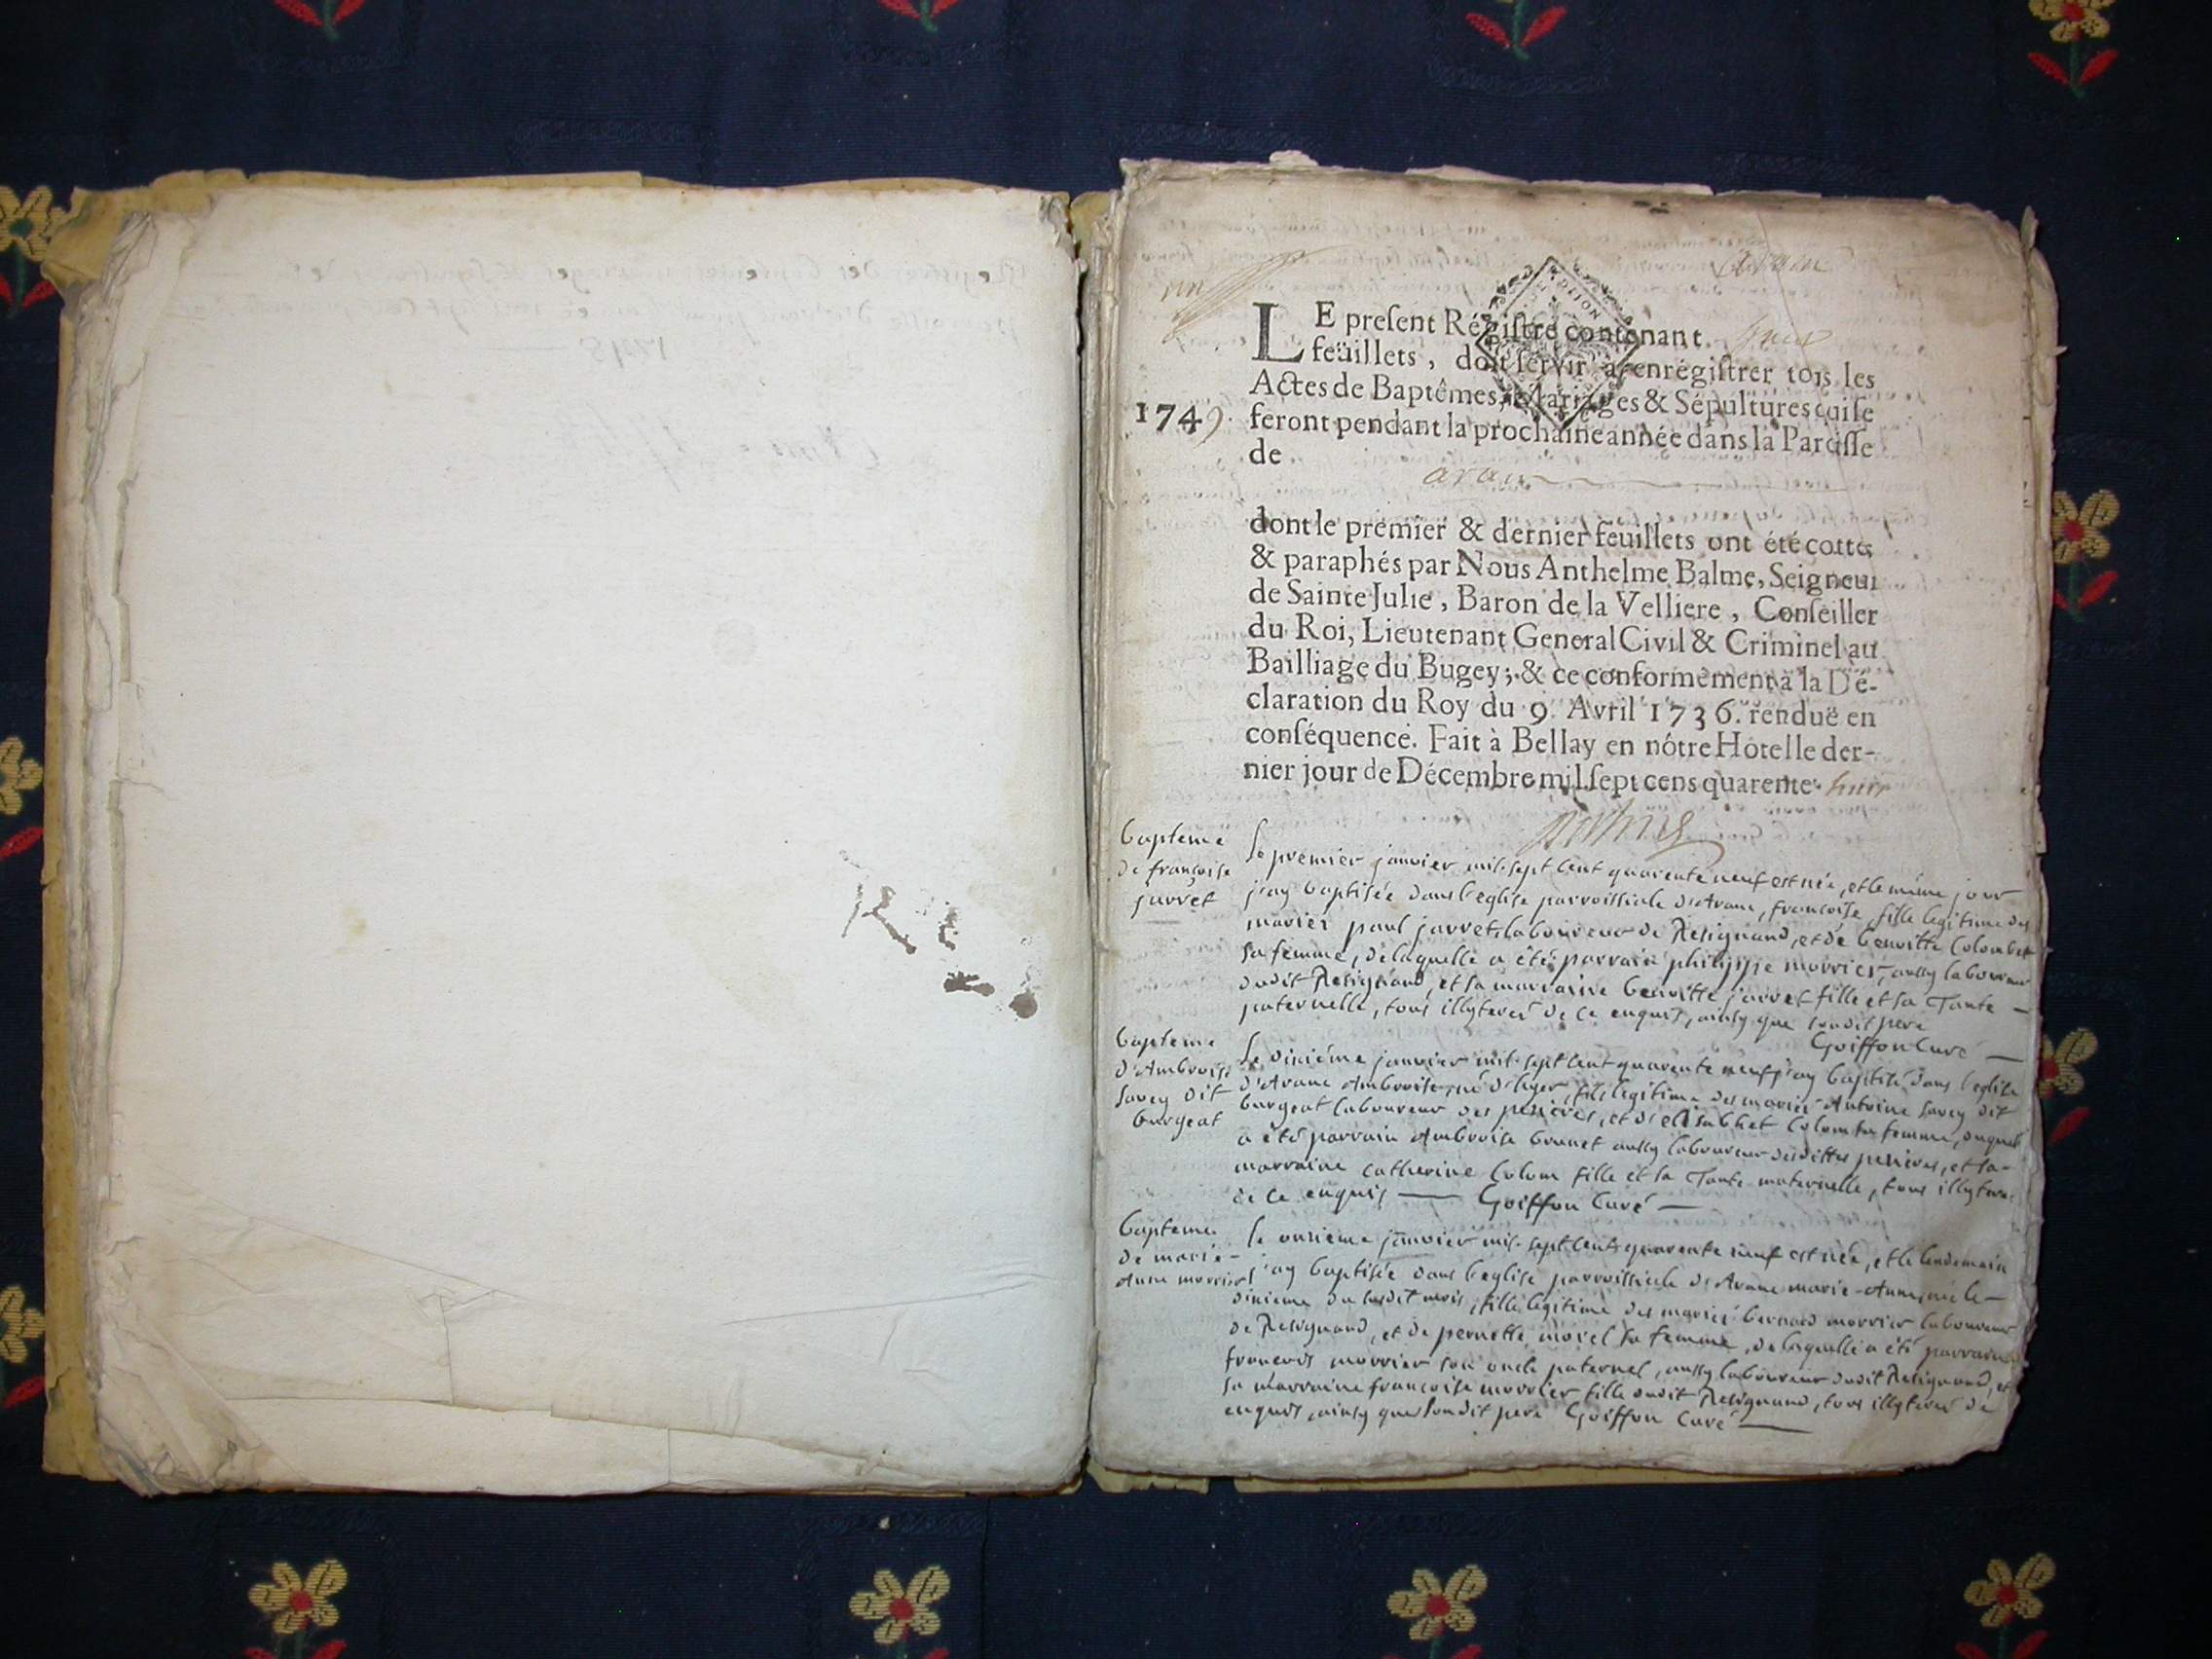 un
aranc
LE present Régistre contenant huit
feüillets, doit servir à enrégistrer tous les
Actes de Baptêmes, Mariages & Sépultures qui se
1749. feront pendant la prochaine année dans la Paroisse
de
aranc
dont le premier & dernier feuillets ont été cottés
& paraphés par Nous Anthelme Balme, Seigneur
de Sainte Julie, Baron de la Velliere, Conseiller
du Roi, Lieutenant General Civil & Criminel au
Bailliage du Bugey; & ce conformément à la Dé-
claration du Roy du 9. Avril 1736. renduë en
conséquence. Fait à Bellay en nôtre Hôtel le der-
nier jour de Décembre mil sept cens quarente huit
bapteme
de françoise
jarret
le premier janvier mil-sept cent quarente neuf est née, et le même jour
j'ay baptisée dans l'eglise parroissiale d'Aranc, françoise, fille legitime des
mariés paul jarret laboureur de Resignand, et de benoitte Colombet
sa femme, de laquelle a été parrain philippe morrier, aussy laboureur
dudit Resignand, et sa marraine benoitte jarret fille et sa Tante
paternelle, tous illyterés de ce enquis, ainsy que sondit pere
Goiffon Curé
bapteme
d'Ambroise
savey dit
burgeat
le dixiéme janvier mil-sept cent quarente neuf j'ay baptisé dans l'eglise
d'Aranc Ambroise, né d'hyer, fils legitime des mariés Antoine savey dit
burgeat laboureur des pezieres, et d'elisabhet Colom sa femme, duquel
a été parrain Ambroise brunet aussy laboureur desdittes pezieres, et sa
marraine catherine Colom fille et sa Tante maternelle, tous illyterés
de ce enquis Goiffon Curé
bapteme
de marie-
Anne morrier
le onzieme janvier mil-sept cent quarente neuf est née, et le lendemain
j'ay baptisée dans l'eglise parroissiale d'Aranc marie-Anne, née le
dixieme du susdit mois, fille legitime des mariés bernard morrier laboureur
de Resignand, et de pernette morel sa femme, de laquelle a été parrain
françois morrier son oncle paternel, aussy laboureur dudit Resignand, et
sa marraine françoise morrier fille dudit Resignand, tous illyterés de
enquis, ainsy que sondit pere Goiffon Curé